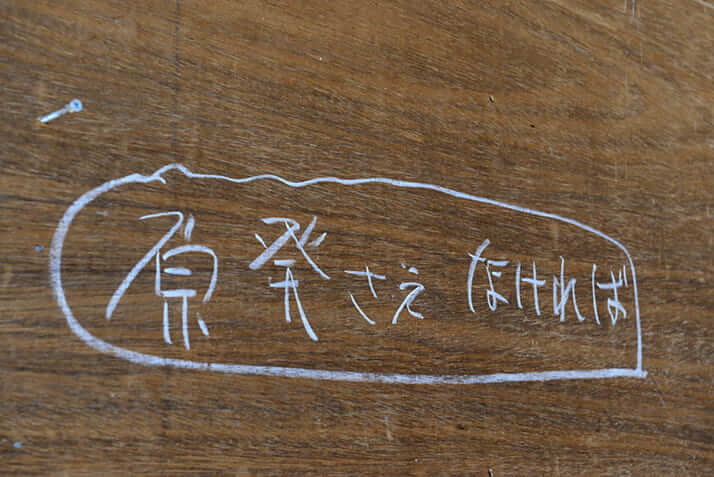 原発さえなければ